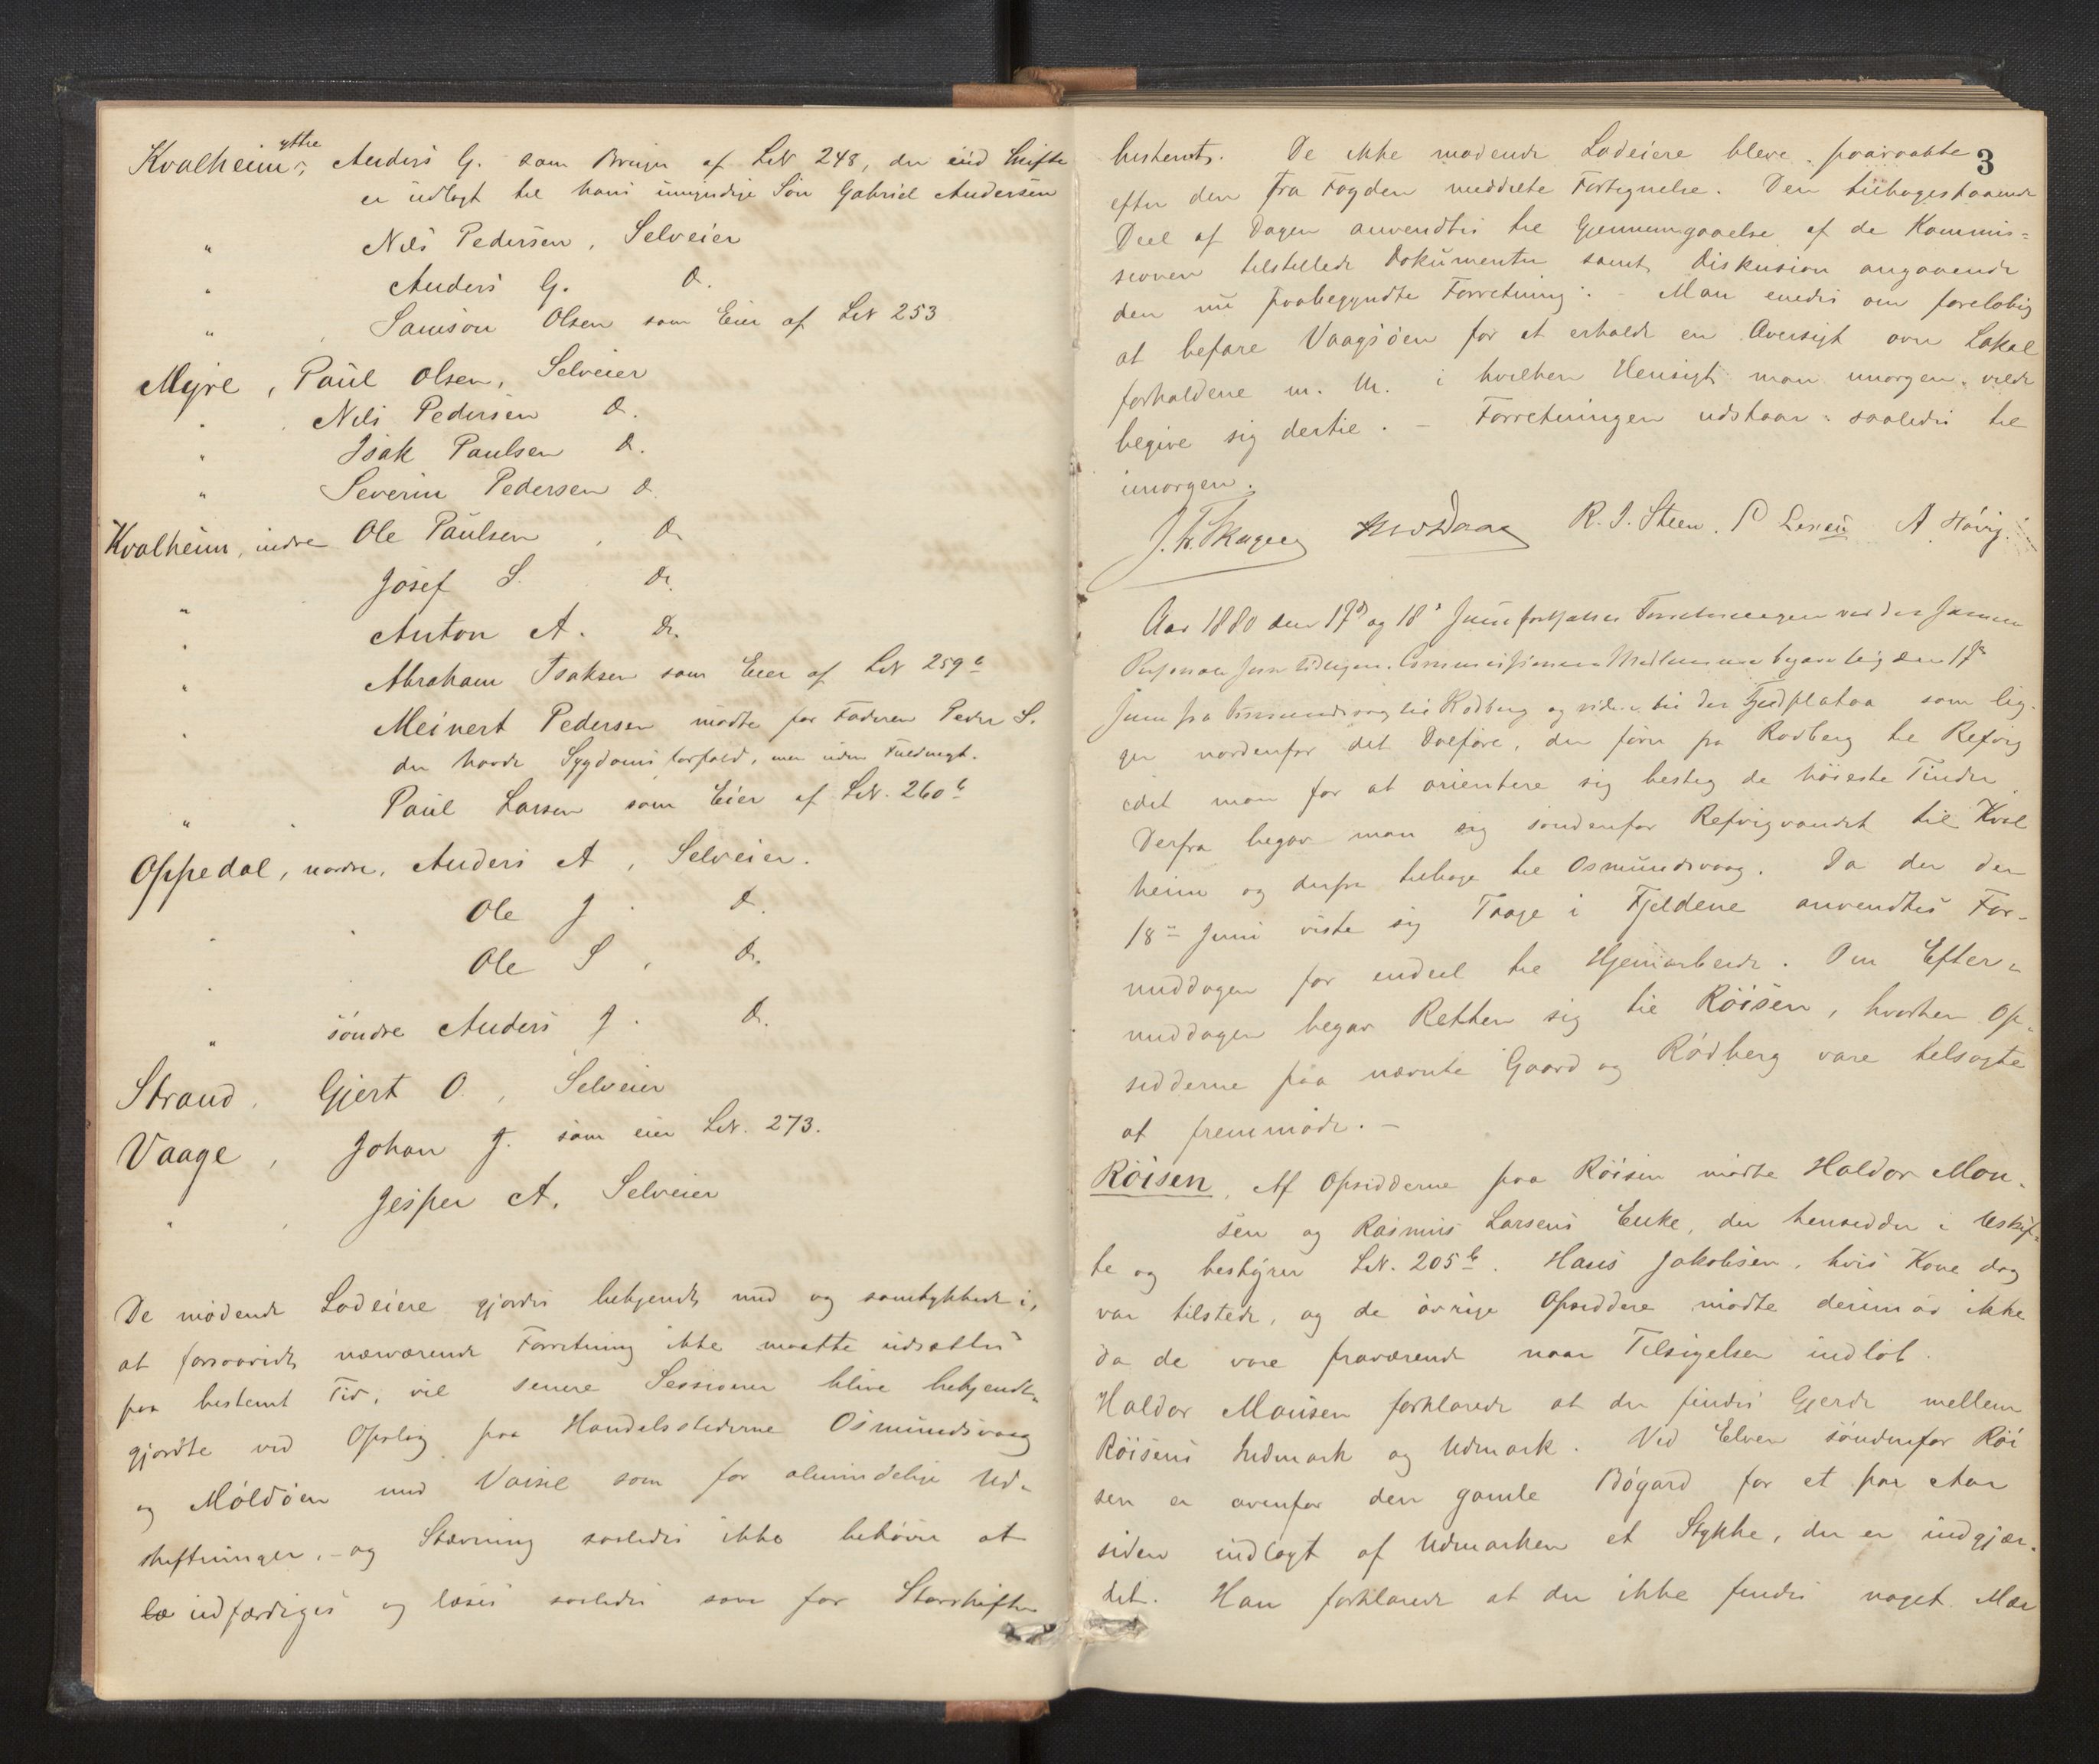 Kvalheim, yttre, Anders G. som Bruger af LN 248, der ved Skifte
er udlagt til hans umyndige Søn Gabriel Andersen
" Nils Pedersen, Selveier
" Anders G. Do.
" Samson Olsen som Eier af LN 253
Myre, Paul Olsen, Selveier
" Nils Pedersen Do.
" Isak Paulsen Do.
" Severin Pedersen Do
Kvalheim, indre Ole Paulsen, Do
" Josef S. Do.
" Anton A. Do.
" Abraham Isaksen som Eier af LN 259b
" Meinert Pedersen mødte for Faderen Peder S.
der havde Sygdoms forfald, men uden Fuldmagt.
" Paul Larsen som Eier af LN. 260b
Oppedal, nordre, Anders A, Selveier.
" Ole J. Do.
" Ole S, Do.
" søndre Anders J. Do.
Strand, Gjert O., Selveier
Vaage, Johan J. som eier LN. 273.
" Jesper A. Selveier
De mødende Lodeiere gjordes bekjendt med og samtykkede i,
at forsaavidt nærværende Forretning ikke maatte udsættes
paa bestemt Tid, vil senere Sessioner blive bekjendt-
gjordte ved Opslag paa Handelsstederne Osmundsvaag
og Moldøen med Varsel som for almindelige Ud-
skiftninger, - og Stævning saaledes ikke behøve at
udfærdiges og læses saaledes som for Storskifte
3
bestemt. De ikke mødende Lodeiere bleve paaraabte
efter den fra Fogden meddelte Fortegnelse. Den tilbagestaaende
Deel af Dagen anvendtes til Gjennemgaaelse af de Kommis-
sionen tilstillede Dokumenter samt Diskusion angaaende
den nu paabegyndte Forretning. - Man enedes om foreløbig
at befare Vaagsøen for at erholde en Oversigt over Lokal
forholdene m. M. i hvilken Hensigt man imorgen vilde
begive sig dertil. - Forretningen udstaar saaledes til
imorgen.
R. I. Steen. A Høvig.
Aar 1880 den 17de og 18de Juni fortsattes Forretningen ved den samme
Personale som tidligere. Commissionens Medlemmer begave sig den 17de
Juni fra Osmundsvaag til Rødberg og videre til det Fjeldplataa som lig-
ger nordenfor det Dalføre, der fører fra Rødberg til Refvig
idet man for at orientere sig besteg de høieste Tinder
Derfra begav man sig søndenfor Refvigvandet til Kval
heim og derfra tilbage til Osmundsvaag. Da der den
18de Juni viste sig Taage i Fjeldene anvendtes For-
middagen for endeel til Hjemarbeide. Om Efter-
middagen begav Retten sig til Röisen, hvorhen Op-
sidderne paa nævnte Gaard og Rødberg vare tilsagte
at fremmøde. -
Röisen. Af Opsidderne paa Röisen mødte Haldor Mon-
sen og Rasmus Larsens Enke, der hensidder i Uskif-
te og bestyrer LN. 205b. Hans Jakobsen, hvis Kone dog
var tilstede, og de øvrige Opsiddere mødte derimod ikke
da de vare fraværende naar Tilsigelsen indløb.
Haldor Monsen forklarede at der findes Gjerde mellem
Röisens Indmark og Udmark. Ved Elven søndenfor Röi
sen er ovenfor den gamle Bøgard for et par Aar
siden indlagt af Udmarken et Stykke, der er indgjær-
det. Han forklarede at der ikke findes noget Mær